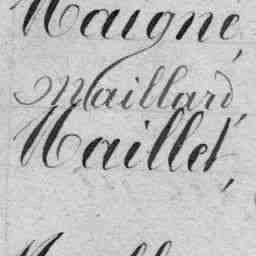 Maigne,
Maillard,
Maillet,